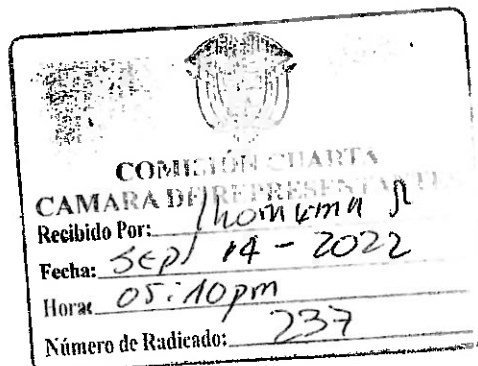 COMISIÓN CUARTA
CAMARA DE REPRESENTANTES
Recibido Por:
Fecha: Sep/ 14 - 2022
Hora: 05:10pm
Número de Radicado: 237